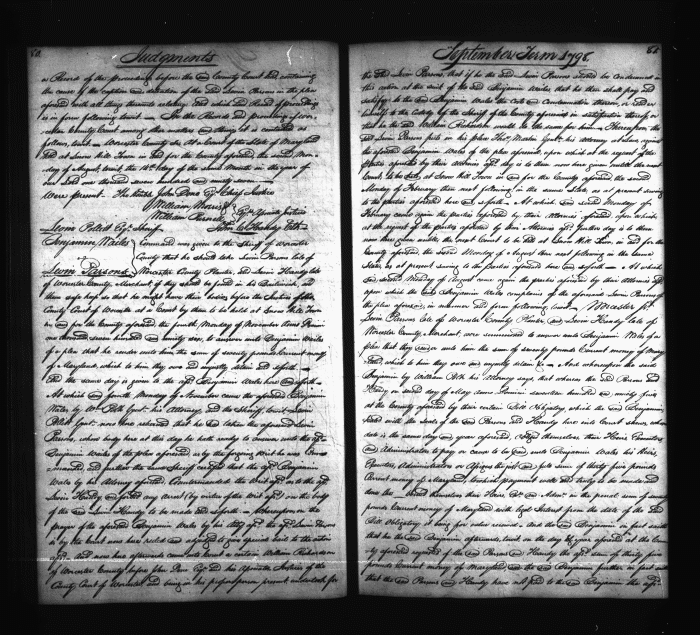 80
Judgments
a Record of the proceedings before the said County Court and containing
the cause of the caption and detention of the said Levin Parsons in the plea
aforesaid with all things thereunto relating, and which said Record of proceedings
is in form following towit — In the Record and proceedings of Wor-
cester County Court among other matters and things it is contained as
follows, towit — Worcester County Sct. At a Court of the State of Maryland
held at Snow Hill Town in and for the County aforesaid the second Mon-
day of August towit the day of the same Month in the year of
our Lord one thousand seven hundred and ninety
Were present. The Honble John Done Esqr. Chief Justice
William Morris
William Purnell Esqrs. Associate Justices
Levin Pollitt Esqr. Sheriff. John C. Handy Clk
Benjamin Wailes Command was given to the Sheriff of Worcester
County that he should take Levin Parsons late of
Levin Parsons Worcester County Planter, and Levin Handy late
of Worcester County, Merchant, if they should be found in his Bailiwick, and
them safe keep so that he might have their bodies before the Justices of the
County Court of Worcester at a Court by them to be held at Snow Hill Town
in and for the County aforesaid, the fourth Monday of November Anno Domini
one thousand seven hundred and ninety six, to answer unto Benjamin Wailes
of a plea that he render unto him the sum of seventy pounds Current money
of Maryland, which to him they owe and unjustly detain and soforth —
And the same day is given to the afsd. Benjamin Wailes here and soforth —
At which said fourth Monday of November came the aforesaid Benjamin
Wailes by Wm. Polk Gent. his Attorney, and the Sheriff, towit Levin
Pollitt Gent. now here returned that he had taken the aforesaid Levin
Parsons, whose body here at this day he hath ready to answer unto the afsd.
Benjamin Wailes of the plea aforesaid as by the foregoing Writ he was Com-
manded, and further the same Sheriff certifies that the afsd. Benjamin
Wailes by his Attorney aforesaid Countermanded the Writ afsd. as to the afsd.
Levin Handy, and forbid any Arrest (by virtue of the Writ afsd.) on the body
of the said Levin Handy to be made and soforth — Whereupon on the
prayer of the aforesaid Benjamin Wailes by his Atty. afsd. the afsd. Levin Parsons is
by the Court now here ruled and adjudged to give special bail to the action
afsd. And now here afterwards came into Court a certain William Richardson
of Worcester County before John Done Esqr. and his Associates Justices of the
County Court of Worcester and being in his proper person present undertook for
September Term 1798.
the said Levin Parsons, that if he the said Levin Parsons should be condemned in
this action at the suit of the said Benjamin Wailes that he then shall pay and
satisfy to the said Benjamin Wailes the Costs and Condemnation thereon, or render
himself to the Custody of the Sheriff of the County aforesaid in satisfaction thereof or
that he the said William Richardson would do the same for him — Whereupon the
said Levin Parsons puts in his place Gent. his Attorney at Law, against
the aforesaid Benjamin Wailes of the plea aforesaid, upon which at the request of the
parties aforesaid by their Attornies afsd. day is to them now here given until the next
Court to be held at Snow Hill Town in and for the County aforesaid the second
Monday of February then next following in the same State, as at present serving
to the parties aforesaid here and soforth — At which said second Monday of
February came again the parties aforesaid by their Attornies aforesaid upon which
at the request of the parties aforesaid by their Attornies afsd. further day is to them
now here given until the next Court to be held at Snow Hill Town, in and for the
County aforesaid, the second Monday of August then next following in the same
State, as at present serving to the parties aforesaid here and soforth — At which
said second Monday of August came again the parties aforesaid by their Attornies and
upon which the said Benjamin Wailes complains of the aforesaid Levin Parsons of
the plea aforesaid, in manner and form following towit — Worcester Sct.
Levin Parsons late of Worcester County Planter and Levin Handy late of
Worcester County, Merchant, were summoned to answer unto Benjamin Wailes of a
plea that they render unto him the sum of seventy pounds Current money of Mary-
land, which to him they owe and unjustly detain — And whereupon the said
Benjamin by William Polk his Attorney says, that whereas the said Parsons and
Handy on the second day of May Anno Domini seventeen hundred and ninety five
at the County aforesaid by their certain Bill Obligatory, which the said Benjamin
sealed with the seals of the said Parsons and Handy here into Court shews, whose
date is the same day and year aforesaid, obliged themselves, their Heirs Executors
and Administrators to pay or cause to be paid unto Benjamin Wailes his Heirs,
Executors, Administrators or Assigns the just and full sum of thirty five pounds
Current money of Maryland, to which payment well and truly to be made and
done bound themselves their Heirs Exs. and Admrs. in the penal sum of seventy
pounds Current money of Maryland with legal Interest from the date of the said
Bill Obligatory as being for value received. And the said Benjamin in fact saith
that he the said Benjamin afterwards, towit on the day & year aforesaid at the Coun-
ty aforesaid requested of the said Parsons and Handy the afsd. sum of thirty five
pounds Current money of Maryland and the said Benjamin further in fact saith
that the said Parsons and Handy have not paid to the said Benjamin the afsd.